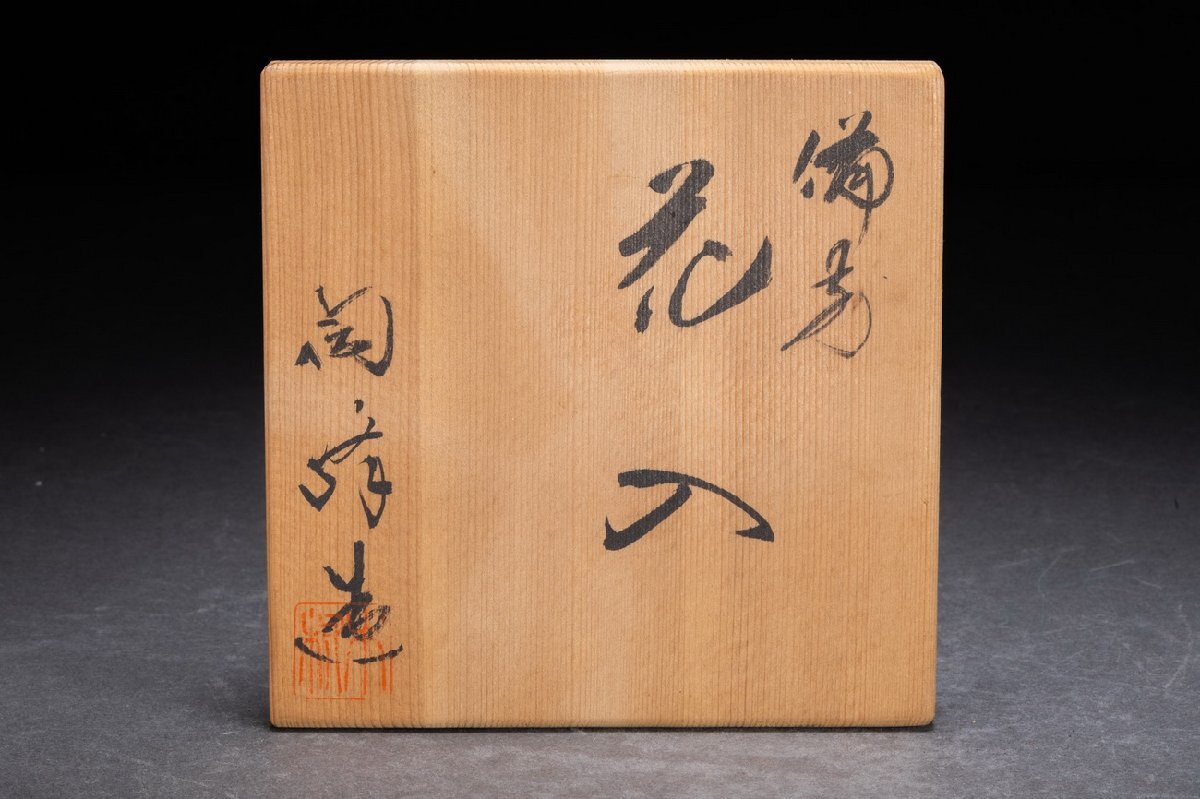 備前
花入
陶
造